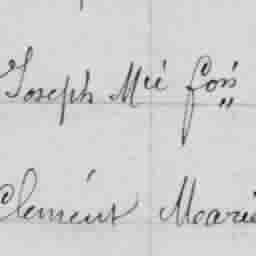 Joseph Mié foń
"
Clément Marie